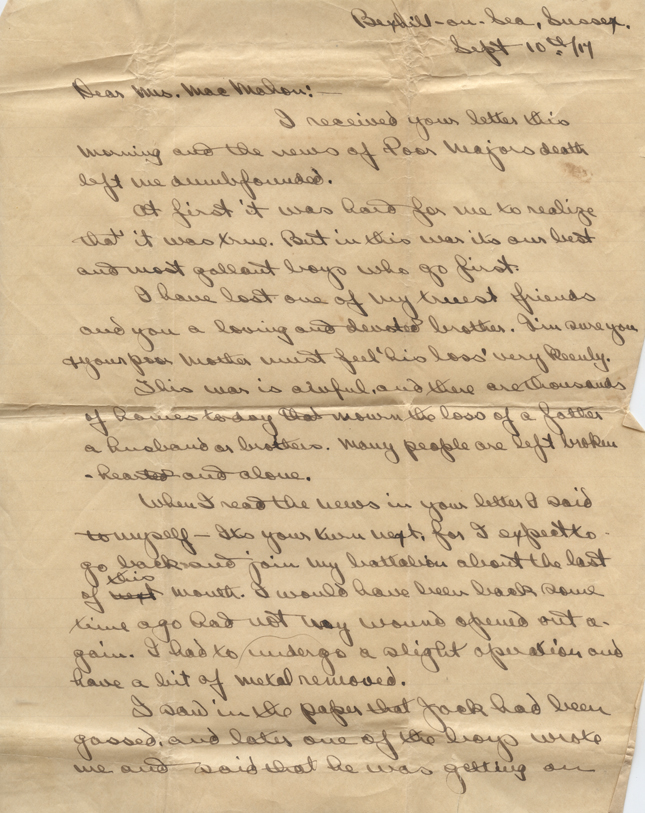 Bexhill-on-Sea, Sussex.
Sept 10th/17
Dear Mrs. MacMahon:—
I received your letter this
morning and the news of Poor Majors death
left me dumbfounded.
At first it was hard for me to realize
that it was true. But in this war its our best
and most gallant boys who go first.
I have lost one of my truest friends
and you a loving and devoted brother. I'm sure you
& your poor Mother must feel his loss very keenly.
This war is awful, and there are thousands
of homes to-day that mourn the loss of a father
a husband or brothers. Many people are left broken
-hearted and alone.
When I read the news in your letter I said
to myself — Its your turn next, for I expect to
go back and join my battalion about the last
this
of next month. I would have been back some
time ago had not my wound opened out a-
gain. I had to undergo a slight operation and
have a bit of metal removed.
I saw in the paper that Jack had been
gassed, and later one of the boys wrote
me and said that he was getting on